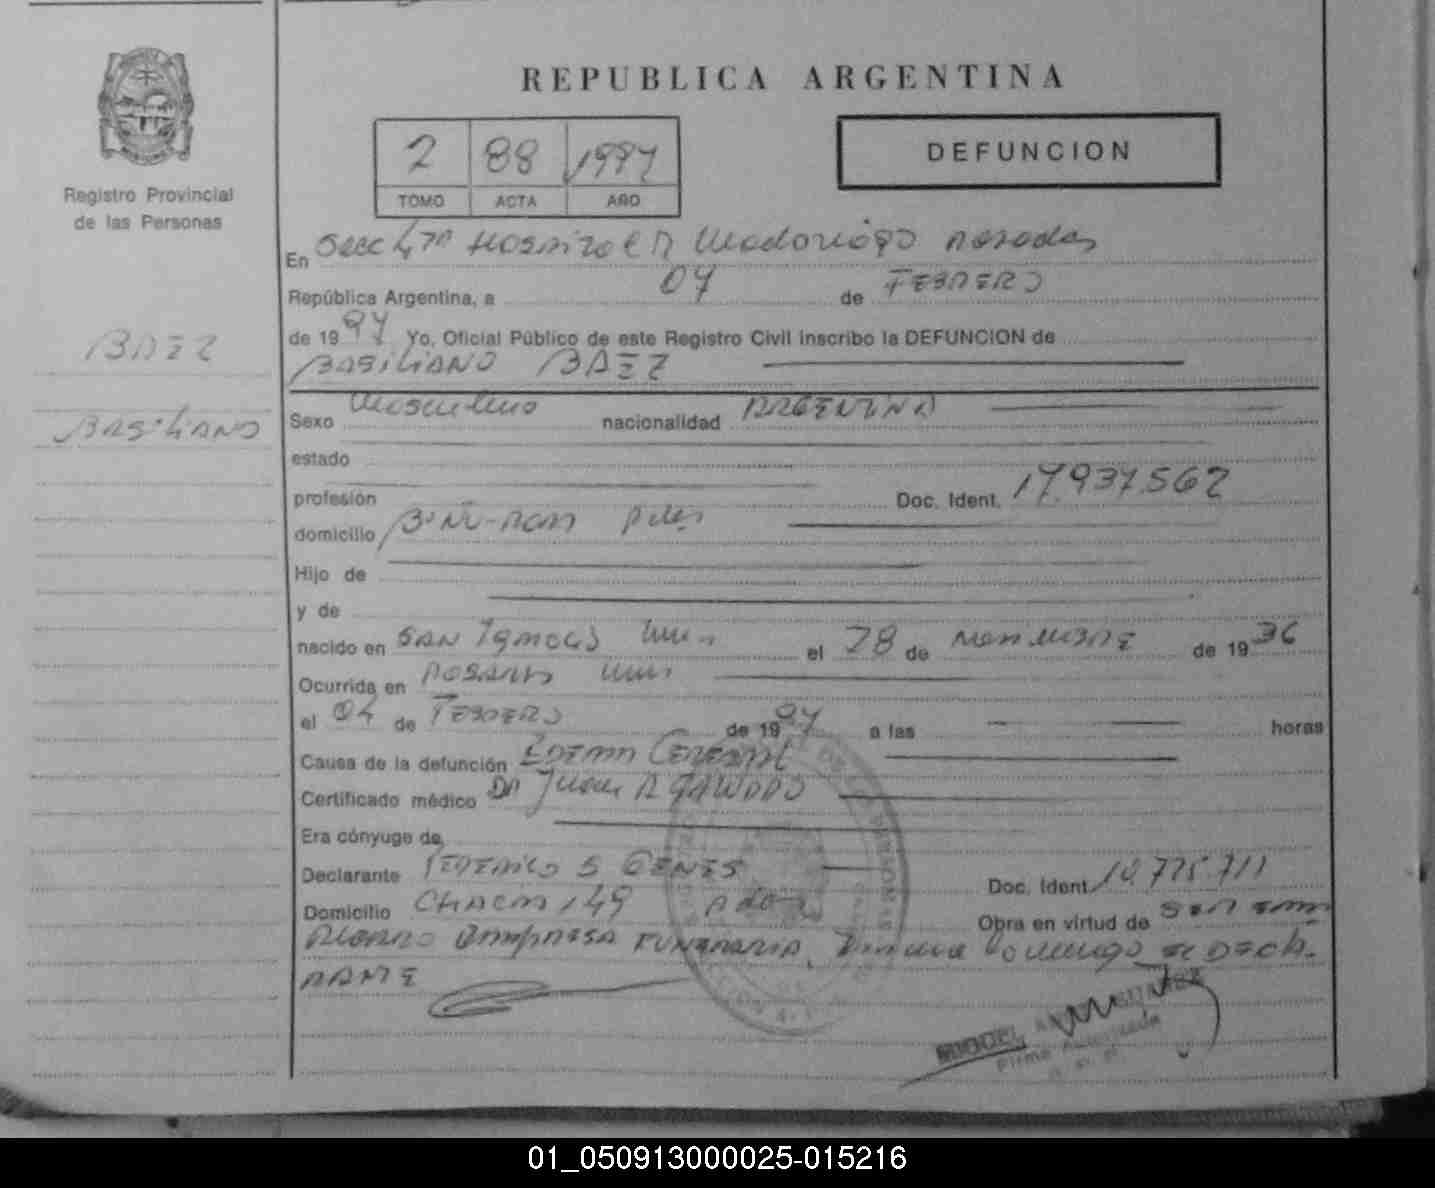 REPUBLICA ARGENTINA
Registro Provincial
de las Personas
2 88 1997
TOMO ACTA AÑO
DEFUNCION
En Secc 4ta Hospital R Madariaga Posadas
República Argentina, a 04 de FEBRERO
de 1997 Yo, Oficial Público de este Registro Civil inscribo la DEFUNCION de
BASILIANO BAEZ
BAEZ
BASILIANO
Sexo Masculino nacionalidad ARGENTINA
estado
profesión Doc. Ident. 17.937.562
domicilio
Hijo de
y de
nacido en SAN Ignacio el 28 de Noviembre de 1936
Ocurrida en POSADAS
el 04 de FEBRERO de 1997 a las horas
Causa de la defunción EDEMA CEREBRAL
Certificado médico DR Juan R GALLARDO
Era cónyuge de
Declarante FEDERICO S GENES Doc. Ident. 14.775.711
Domicilio CHACO 149 Obra en virtud de SER EM
PLEADO EMPRESA FUNERARIA,
RANTE
Firma Autorizada
01_050913000025-015216